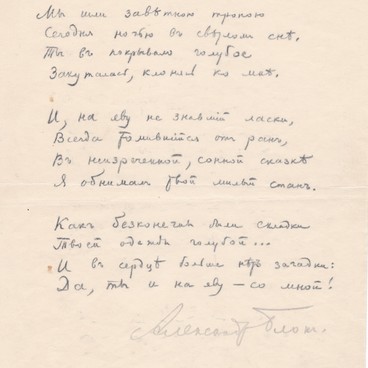 Мы шли завѣтною тропою
Сегодня ночью въ свѣтломъ снѣ.
Ты въ покрывало голубое
Закуталась, клонясь ко мнѣ.
И, на яву не знавшій ласки,
Всегда томившійся отъ ранъ,
Въ неизреченной, сонной сказкѣ
Я обнималъ твой милый станъ.
Какъ безконечны были складки
Твоей одежды голубой...
И въ сердцѣ больше нѣтъ загадки:
Да, ты и на яву — со мной!
Александръ Блокъ.